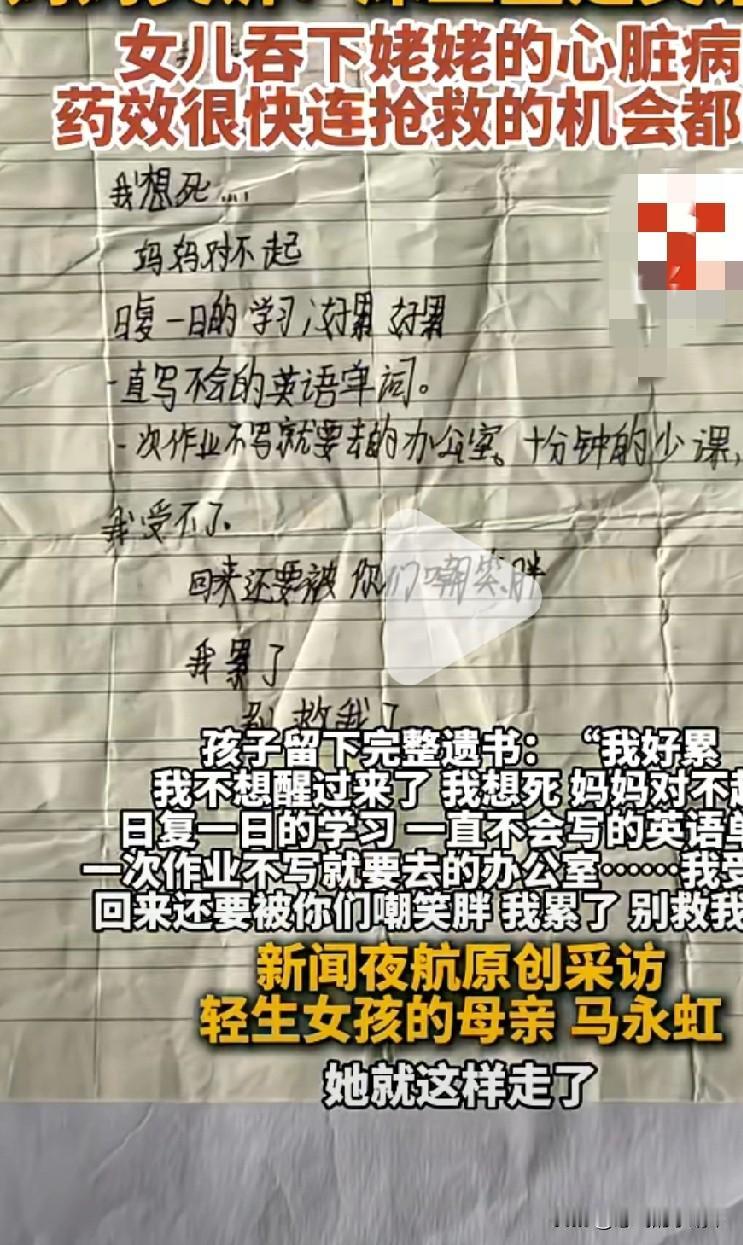 女儿吞下姥姥的心脏病
药效很快连抢救的机会都
我想死....
妈妈对不起
日复一日的学习,好累 好累
一直写不会的英语单词。
一次作业不写就要去的办公室。十分钟的少课,
我受不了.
回来还要被你们嘲笑胖
我累了
别救我了
孩子留下完整遗书：“我好累
我不想醒过来了 我想死 妈妈对不起
日复一日的学习 一直不会写的英语单
一次作业不写就要去的办公室……我受
回来还要被你们嘲笑胖 我累了 别救我
新闻夜航原创采访
轻生女孩的母亲 马永虹
她就这样走了